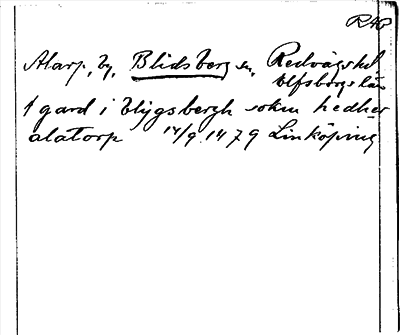 R40
Alarp, by, Blidsberg sn, Redvägs hd
Elfsborgs län
1 gard i bligsbergh sokn hedher
alatorp 14/9 1479 Linköping